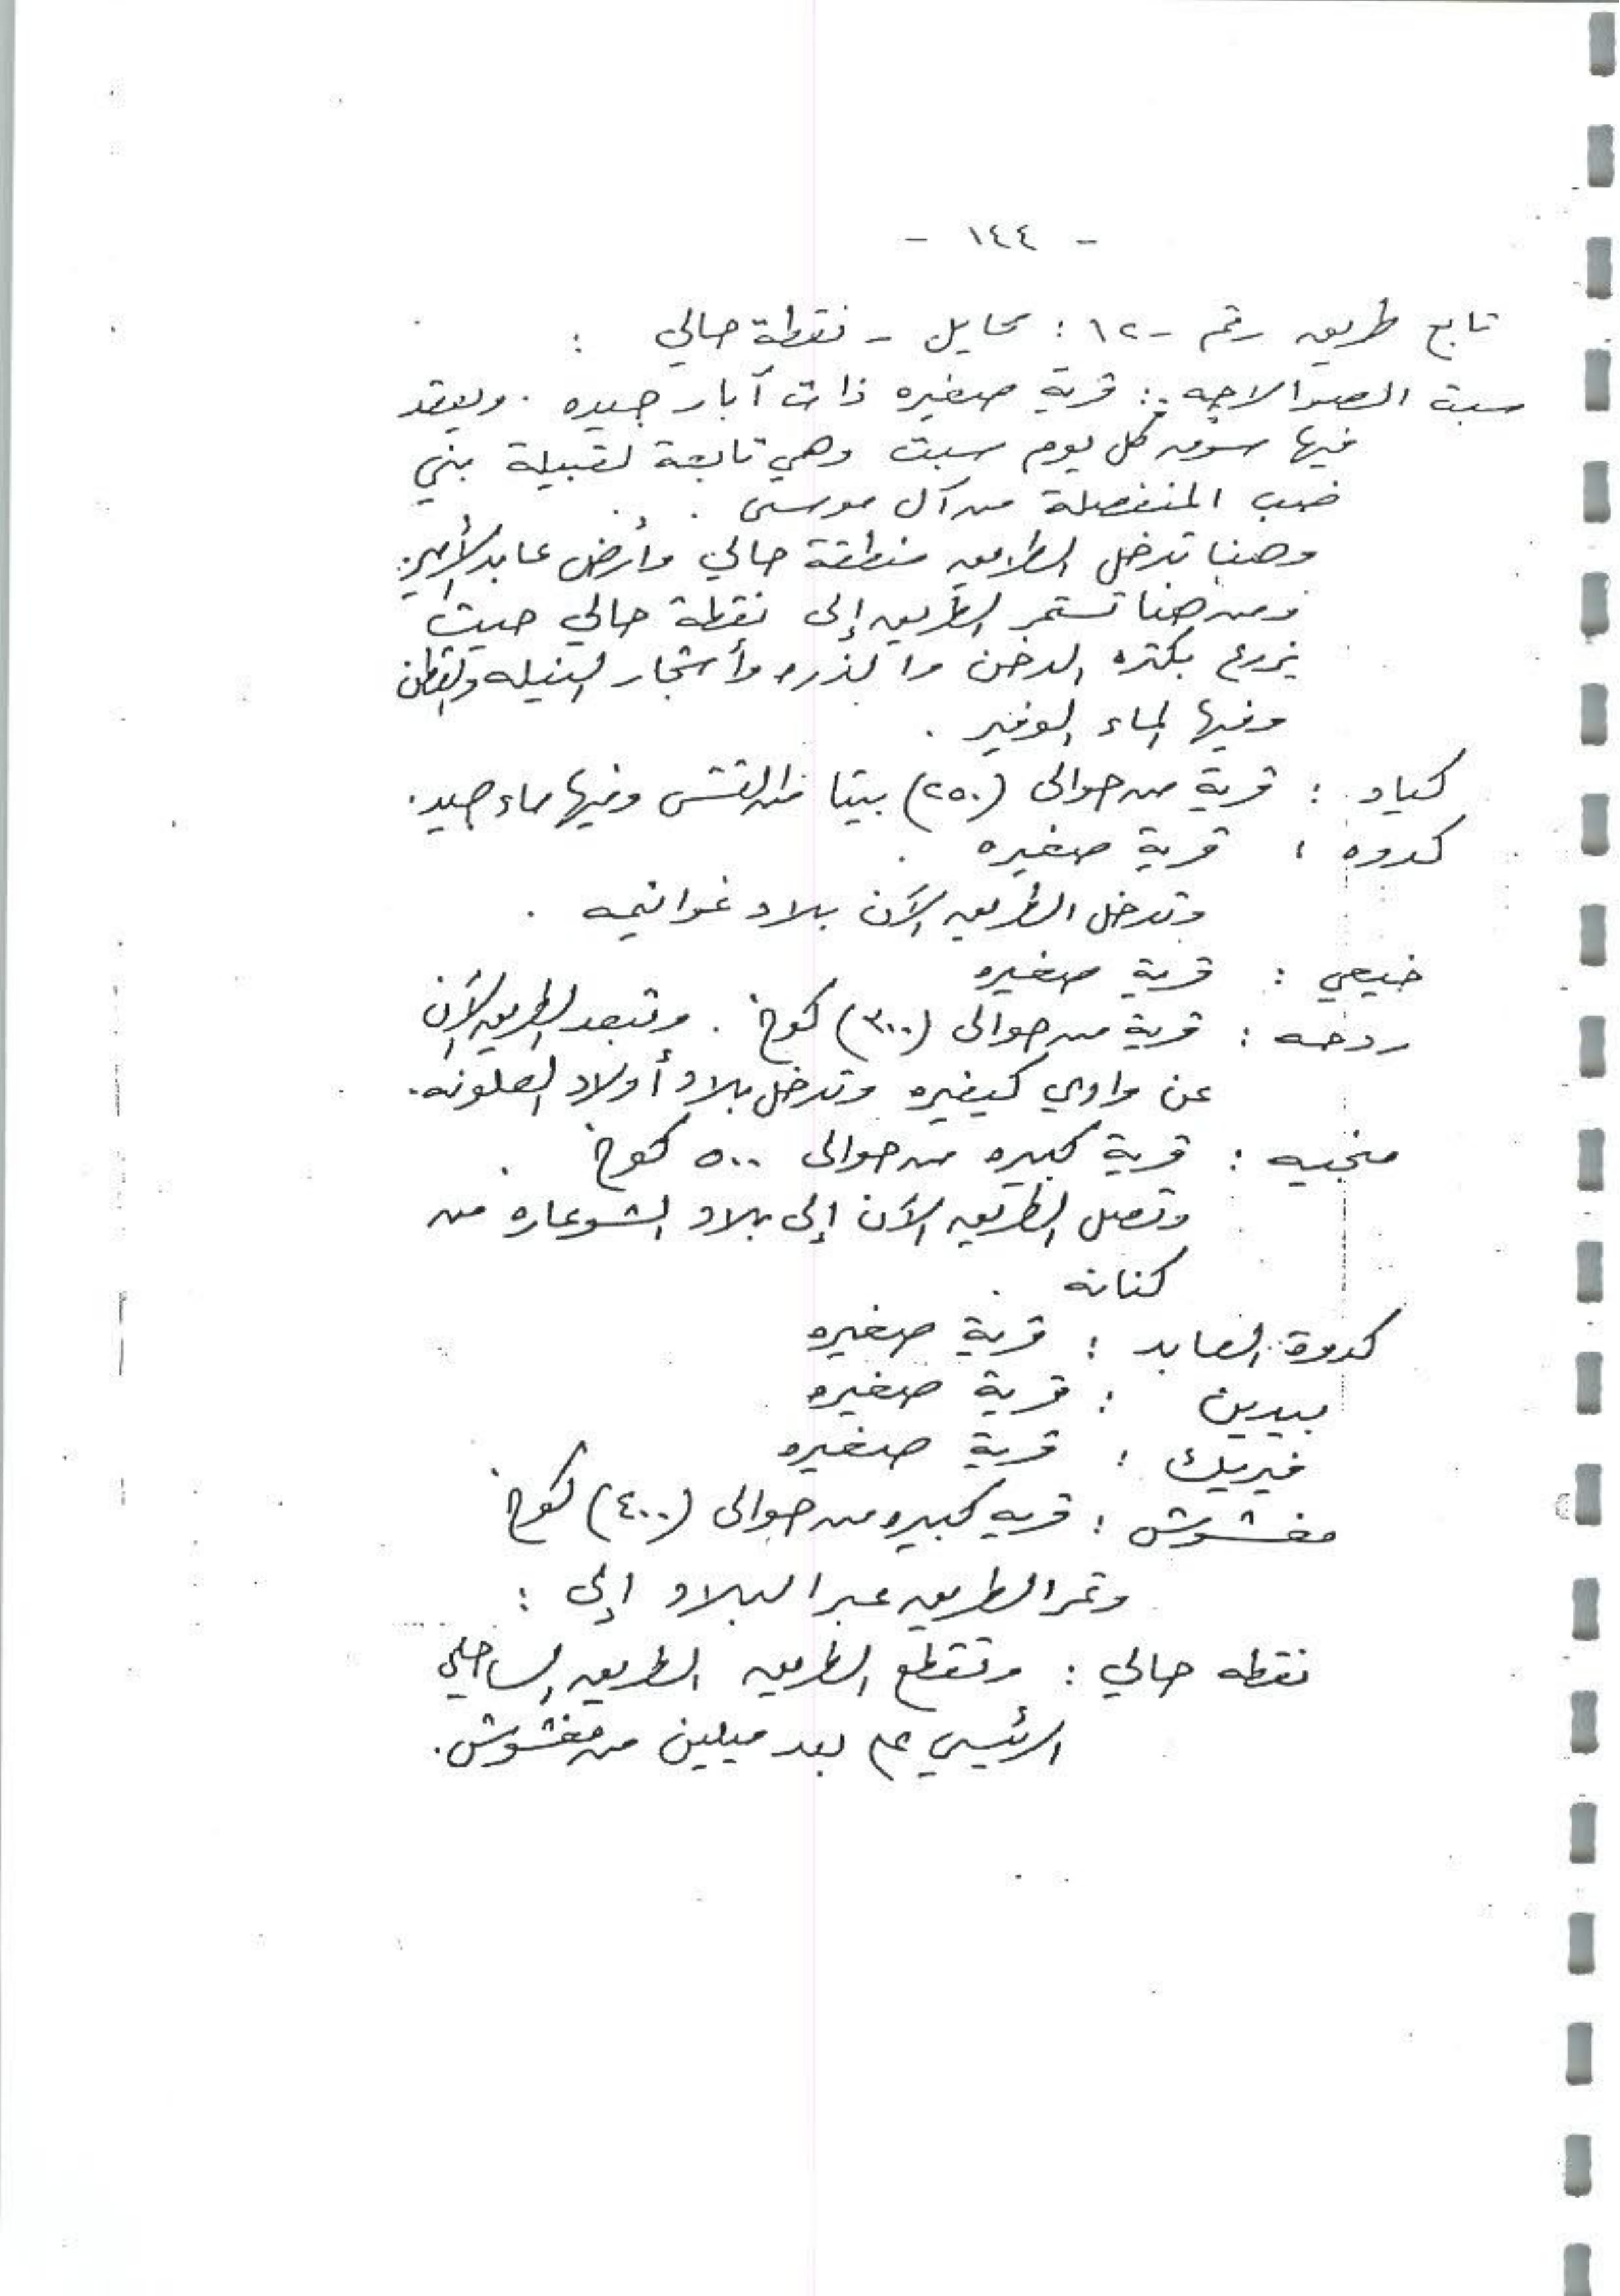 - ١٤٤ -
تابع طريق رقم -١٢ : محايل - نقطة حالي :
سبت الصوالاجه : قرية صغيره ذات آبار جيده . ويعقد
فيها سوق كل يوم سبت وهي تابعة لقبيلة بني
ضب المنفصلة من آل موسى .
وهنا تدخل الطريق منطقة حالي وأرض عابد الأمير:
ومن هنا تستمر الطريق إلى نقطة حالي حيث
يزرع بكثره الدخن والذره وأشجار النيله والقطن
وفيها الماء الوفير .
كياد : قرية من حوالى (٢٥٠) بيتا من القش وفيها ماء جيد .
كدوه : قرية صغيره .
وتدخل الطريق الآن بلاد غوانيمه .
ضيعي : قرية صغيره
ردحه : قرية من حوالى (٣٠٠) كوخ . وتبعد الطريق الآن
عن وادي كيفيره وتدخل بلاد أولاد العلونه .
منجيه : قرية كبيره من حوالى ٥٠٠ كوخ .
وتصل الطريق الآن إلى بلاد الشوعاره من
كنانه .
كدوة العابد : قرية صغيره
بيدين : قرية صغيره
فيريك : قرية صغيره
مغشوش : قريه كبيره من حوالى (٤٠٠) كوخ
وتمر الطريق عبر البلاد إلى :
نقطه حالي : وتقطع الطريق الطريق الساحلي
الرئيسي على بعد ميلين من مغشوش .